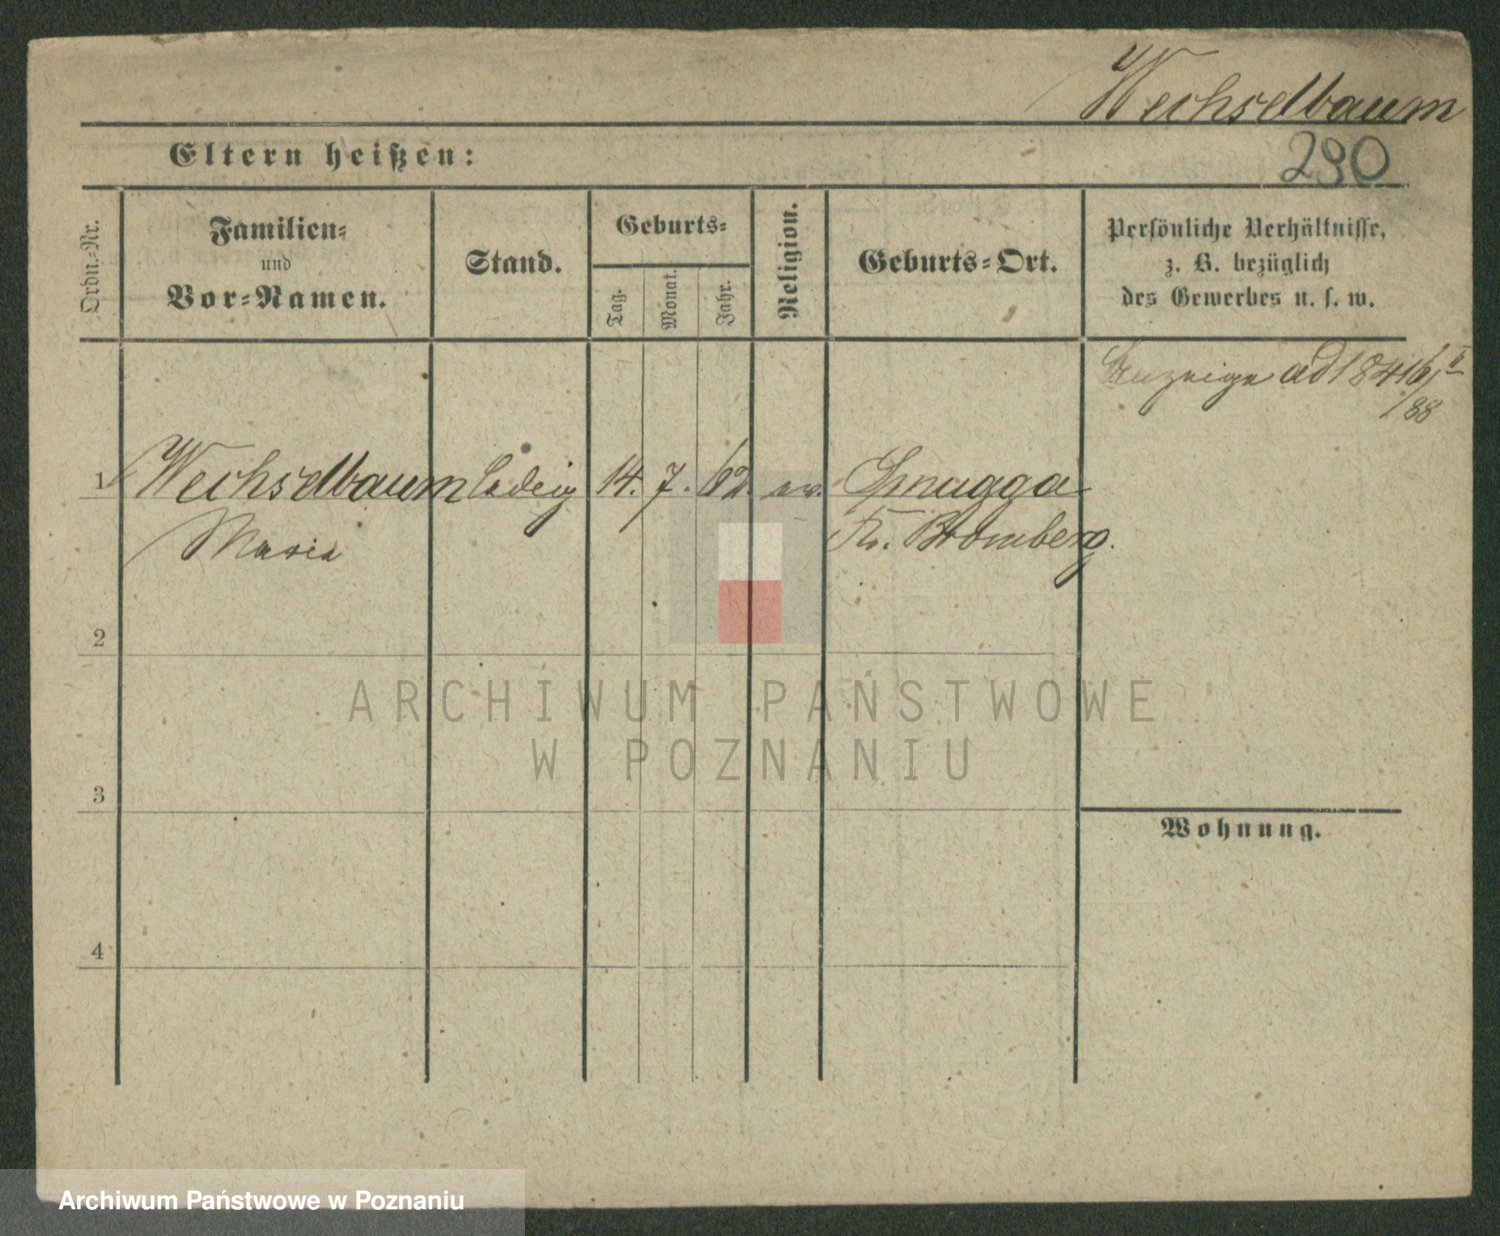 Wechselbaum
290
Eltern heißen:
Ordn.-Nr.
Familien-
und
Vor-Namen.
Stand.
Geburts-
Tag.
Monat.
Jahr.
Religion.
Geburts-Ort.
Persönliche Verhältnisse,
z. B. bezüglich
des Gewerbes u. s. w.
Anzeige ad
/88
1 Wechselbaum ledig 14. 7. 62 ev.
Maria Kr. Bromberg.
2
3
4
Wohnung.
ARCHIWUM PAŃSTWOWE
W POZNANIU
Archiwum Państwowe w Poznaniu